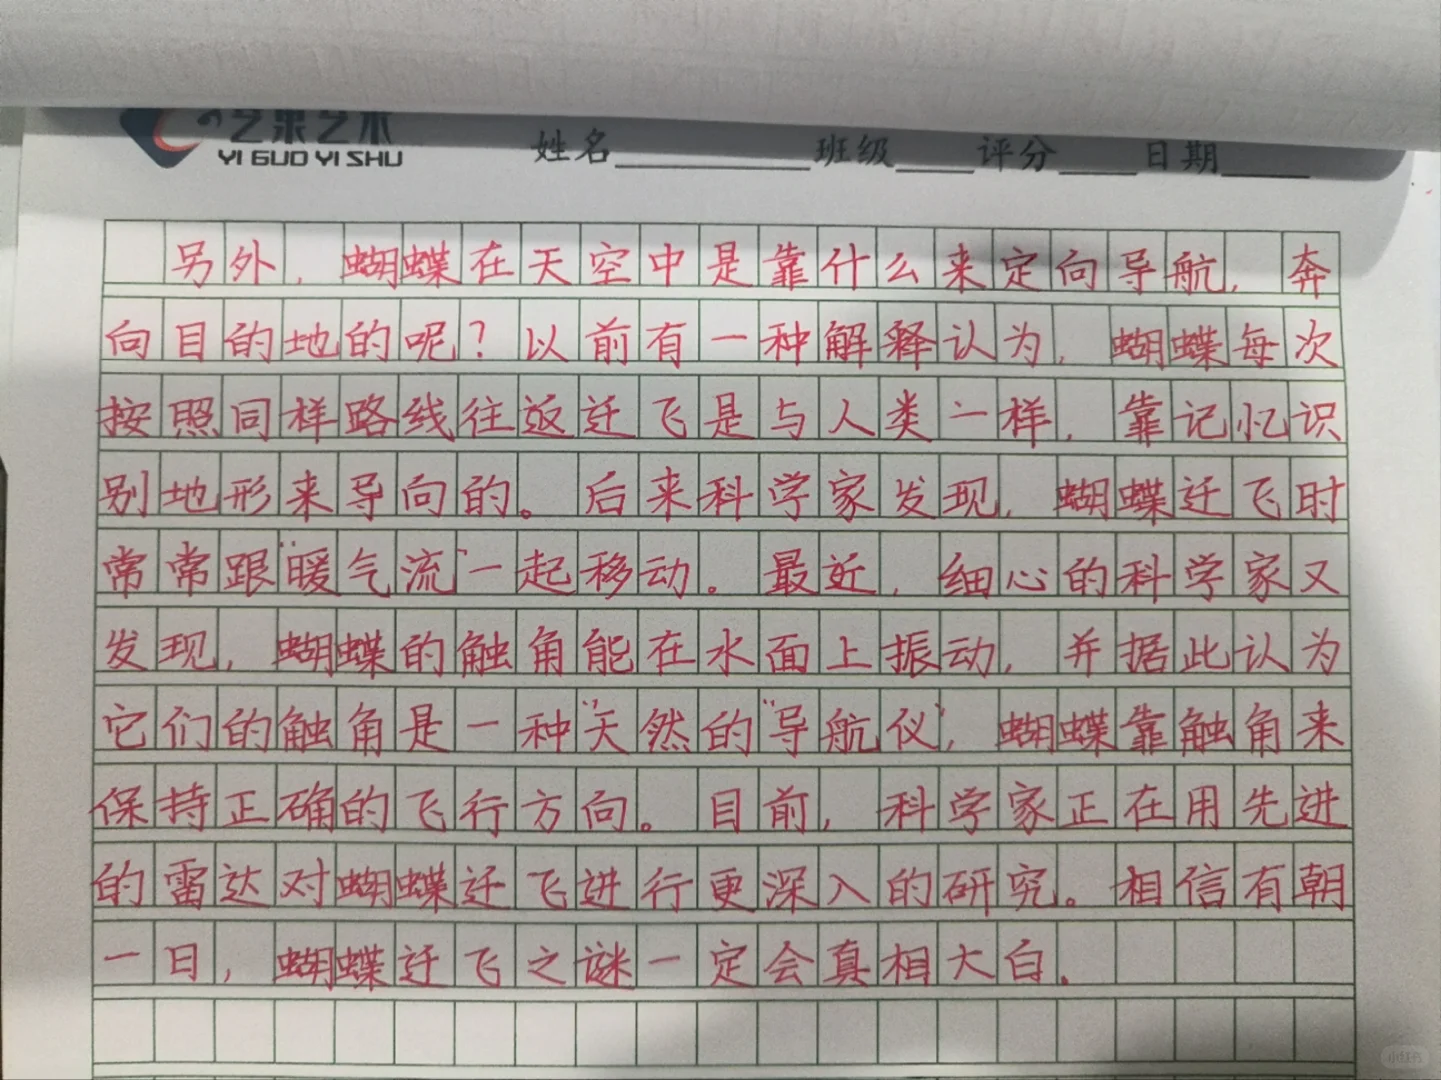 艺果艺术
YI GUO YI SHU
姓名 班级 评分 日期
另外，蝴蝶在天空中是靠什么来定向导航，奔
向目的地的呢？以前有一种解释认为，蝴蝶每次
按照同样路线往返迁飞是与人类一样，靠记忆识
别地形来导向的。后来科学家发现，蝴蝶迁飞时
常常跟“暖气流”一起移动。最近，细心的科学家又
发现，蝴蝶的触角能在水面上振动，并据此认为
它们的触角是一种“天然的“导航仪”，蝴蝶靠触角来
保持正确的飞行方向。目前，科学家正在用先进
的雷达对蝴蝶迁飞进行更深入的研究。相信有朝
一日，蝴蝶迁飞之谜一定会真相大白。
小红书